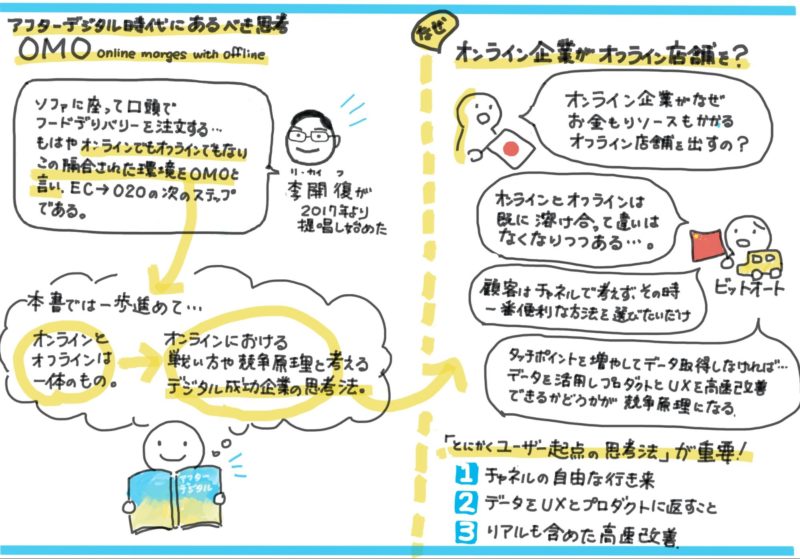 アフターデジタル時代にあるべき思考
OMO Online marges with offline
ソファに座って口頭で
フードデリバリーを注文する…
もはやオンラインでもオフラインでもなり
この融合された環境をOMOと
言い、EC→O2Oの次のステップ
である。
リ・カイ フ
李開復が
2017年より
提唱し始めた
本書では一歩進めて…
オンラインと
オフラインは
一体のもの。
オンラインにおける
戦い方や競争原理と考える
デジタル成功企業の思考法。
アフター
デジタル
なぜ
オンライン企業がオフライン店舗を?
オンライン企業がなぜ
お金もリソースもかかる
オフライン店舗を出すの?
オンラインとオフラインは
既に溶け合って違いは
なくなりつつある…。
ビットオート
顧客はチャネルで考えず、その時
一番便利な方法を選びたいだけ
タッチポイントを増やしてデータ取得しなければ…
データを活用しプロダクトとUXを高速改善
できるかどうかが競争原理になる
「とにかくユーザー起点の思考法」が重要!
1 チャネルの自由な行き来
2 データをUXとプロダクトに返すこと
3 リアルも含めた高速改善